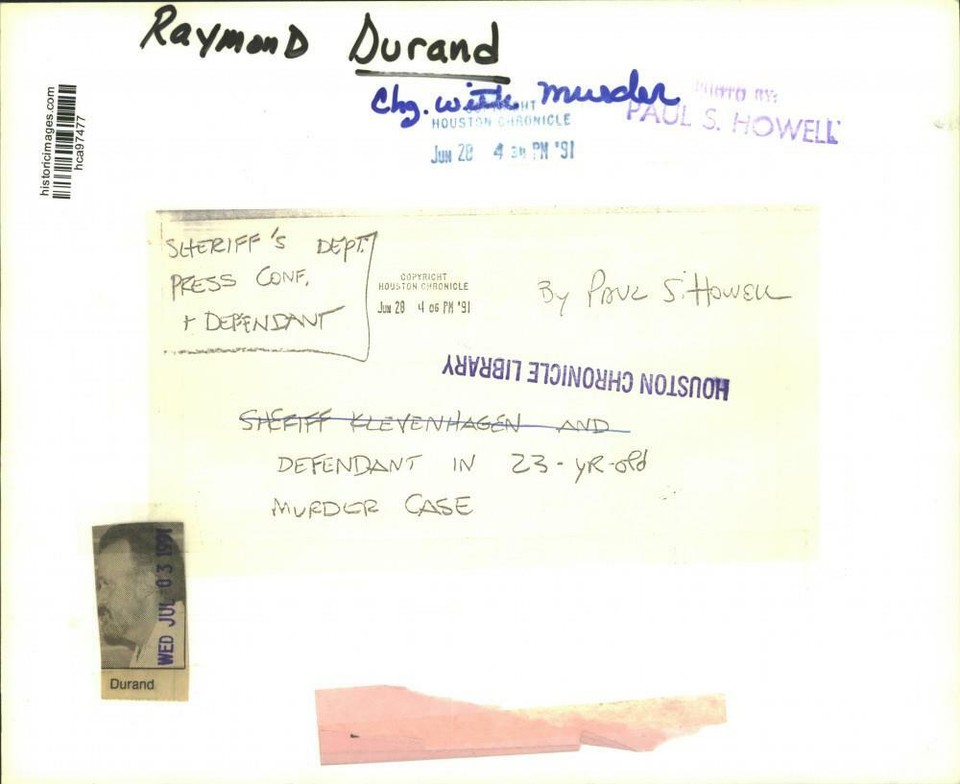 Raymond Durand
Chg. with murder
COPYRIGHT
HOUSTON CHRONICLE
JUN 28 4 34 PM '91
PHOTO BY:
PAUL S. HOWELL
historicimages.com
hca97477
SHERIFF'S DEPT.
PRESS CONF.
+ DEFENDANT
COPYRIGHT
HOUSTON CHRONICLE
JUN 28 4 06 PM '91
By PAUL S. HOWELL
HOUSTON CHRONICLE LIBRARY
SHERIFF KLEVENHAGEN AND
DEFENDANT IN 23-YR-old
MURDER CASE
WED JUL 03 1991
Durand